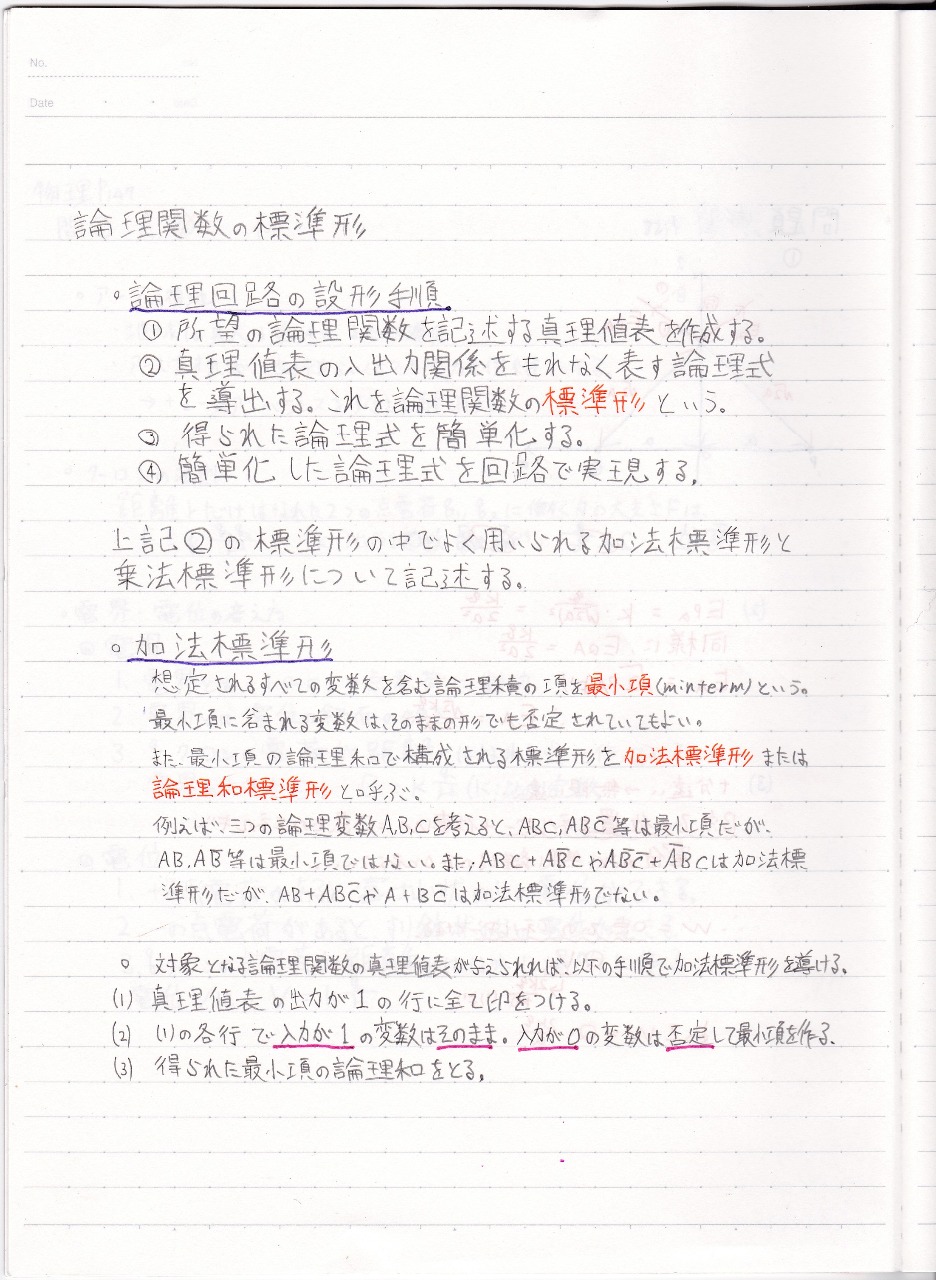 No.
Date
論理関数の標準形
○ 論理回路の設形手順
① 所望の論理関数を記述する真理値表を作成する。
② 真理値表の入出力関係をもれなく表す論理式
を導出する。これを論理関数の標準形という。
③ 得られた論理式を簡単化する。
④ 簡単化した論理式を回路で実現する。
上記②の標準形の中でよく用いられる加法標準形と
乗法標準形について記述する。
○ 加法標準形
想定されるすべての変数を含む論理積の項を最小項(minterm)という。
最小項に含まれる変数は、そのままの形でも否定されていてもよい。
また、最小項の論理和で構成される標準形を加法標準形または
論理和標準形と呼ぶ。
例えば、三つの論理変数A,B,Cを考えると、ABC,ABC̅等は最小項だが、
AB,AB̅等は最小項ではない。また,ABC+AB̅CやAB̅C̅+A̅BCは加法標
準形だが、AB+ABC̅やA+BC̅は加法標準形でない。
○ 対象となる論理関数の真理値表が与えられれば、以下の手順で加法標準形を導ける。
(1) 真理値表の出力が1の行に全て印をつける。
(2) (1)の各行で入力が1の変数はそのまま。入力が0の変数は否定して最小項を作る。
(3) 得られた最小項の論理和をとる。